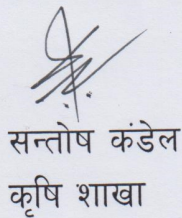 सन्तोष कंडेल
कृषि शाखा